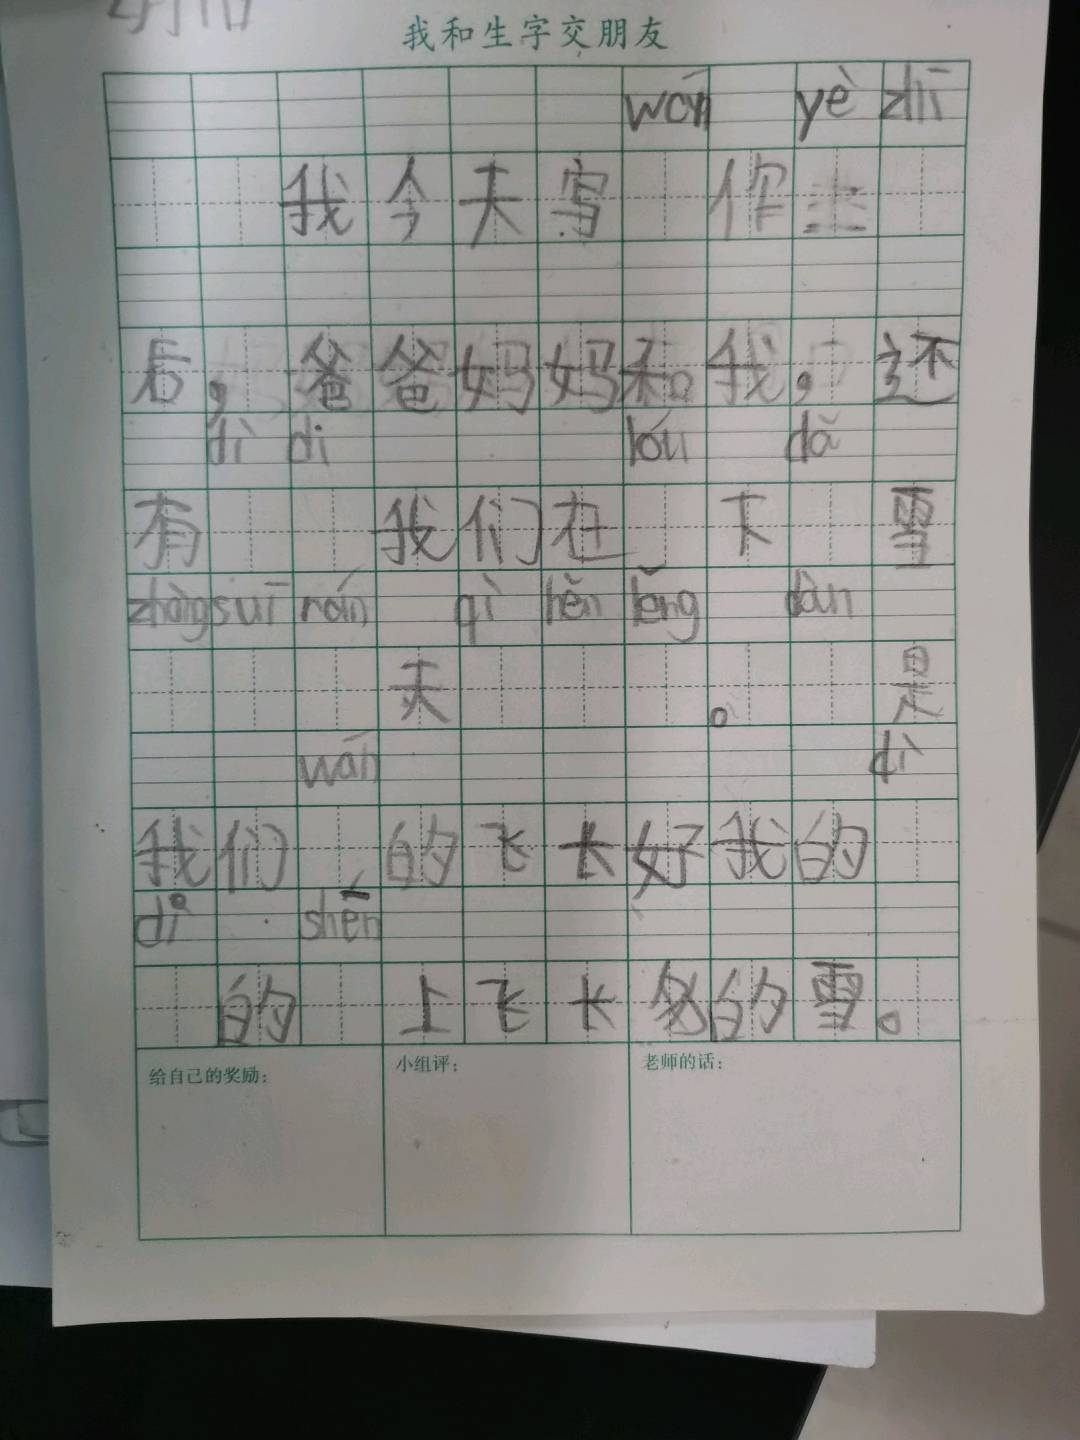 我和生字交朋友
wán yè zhī
我今天写 作业
后，爸爸妈妈和我，还
dì di lóu dǎ
有 我们在 下 雪
zhàng suī rán qì hěn lěng dàn
天 。 是
wán dì
我们 的飞长好我的
di shēn
的 上飞长多的雪。
给自己的奖励：
小组评：
老师的话：